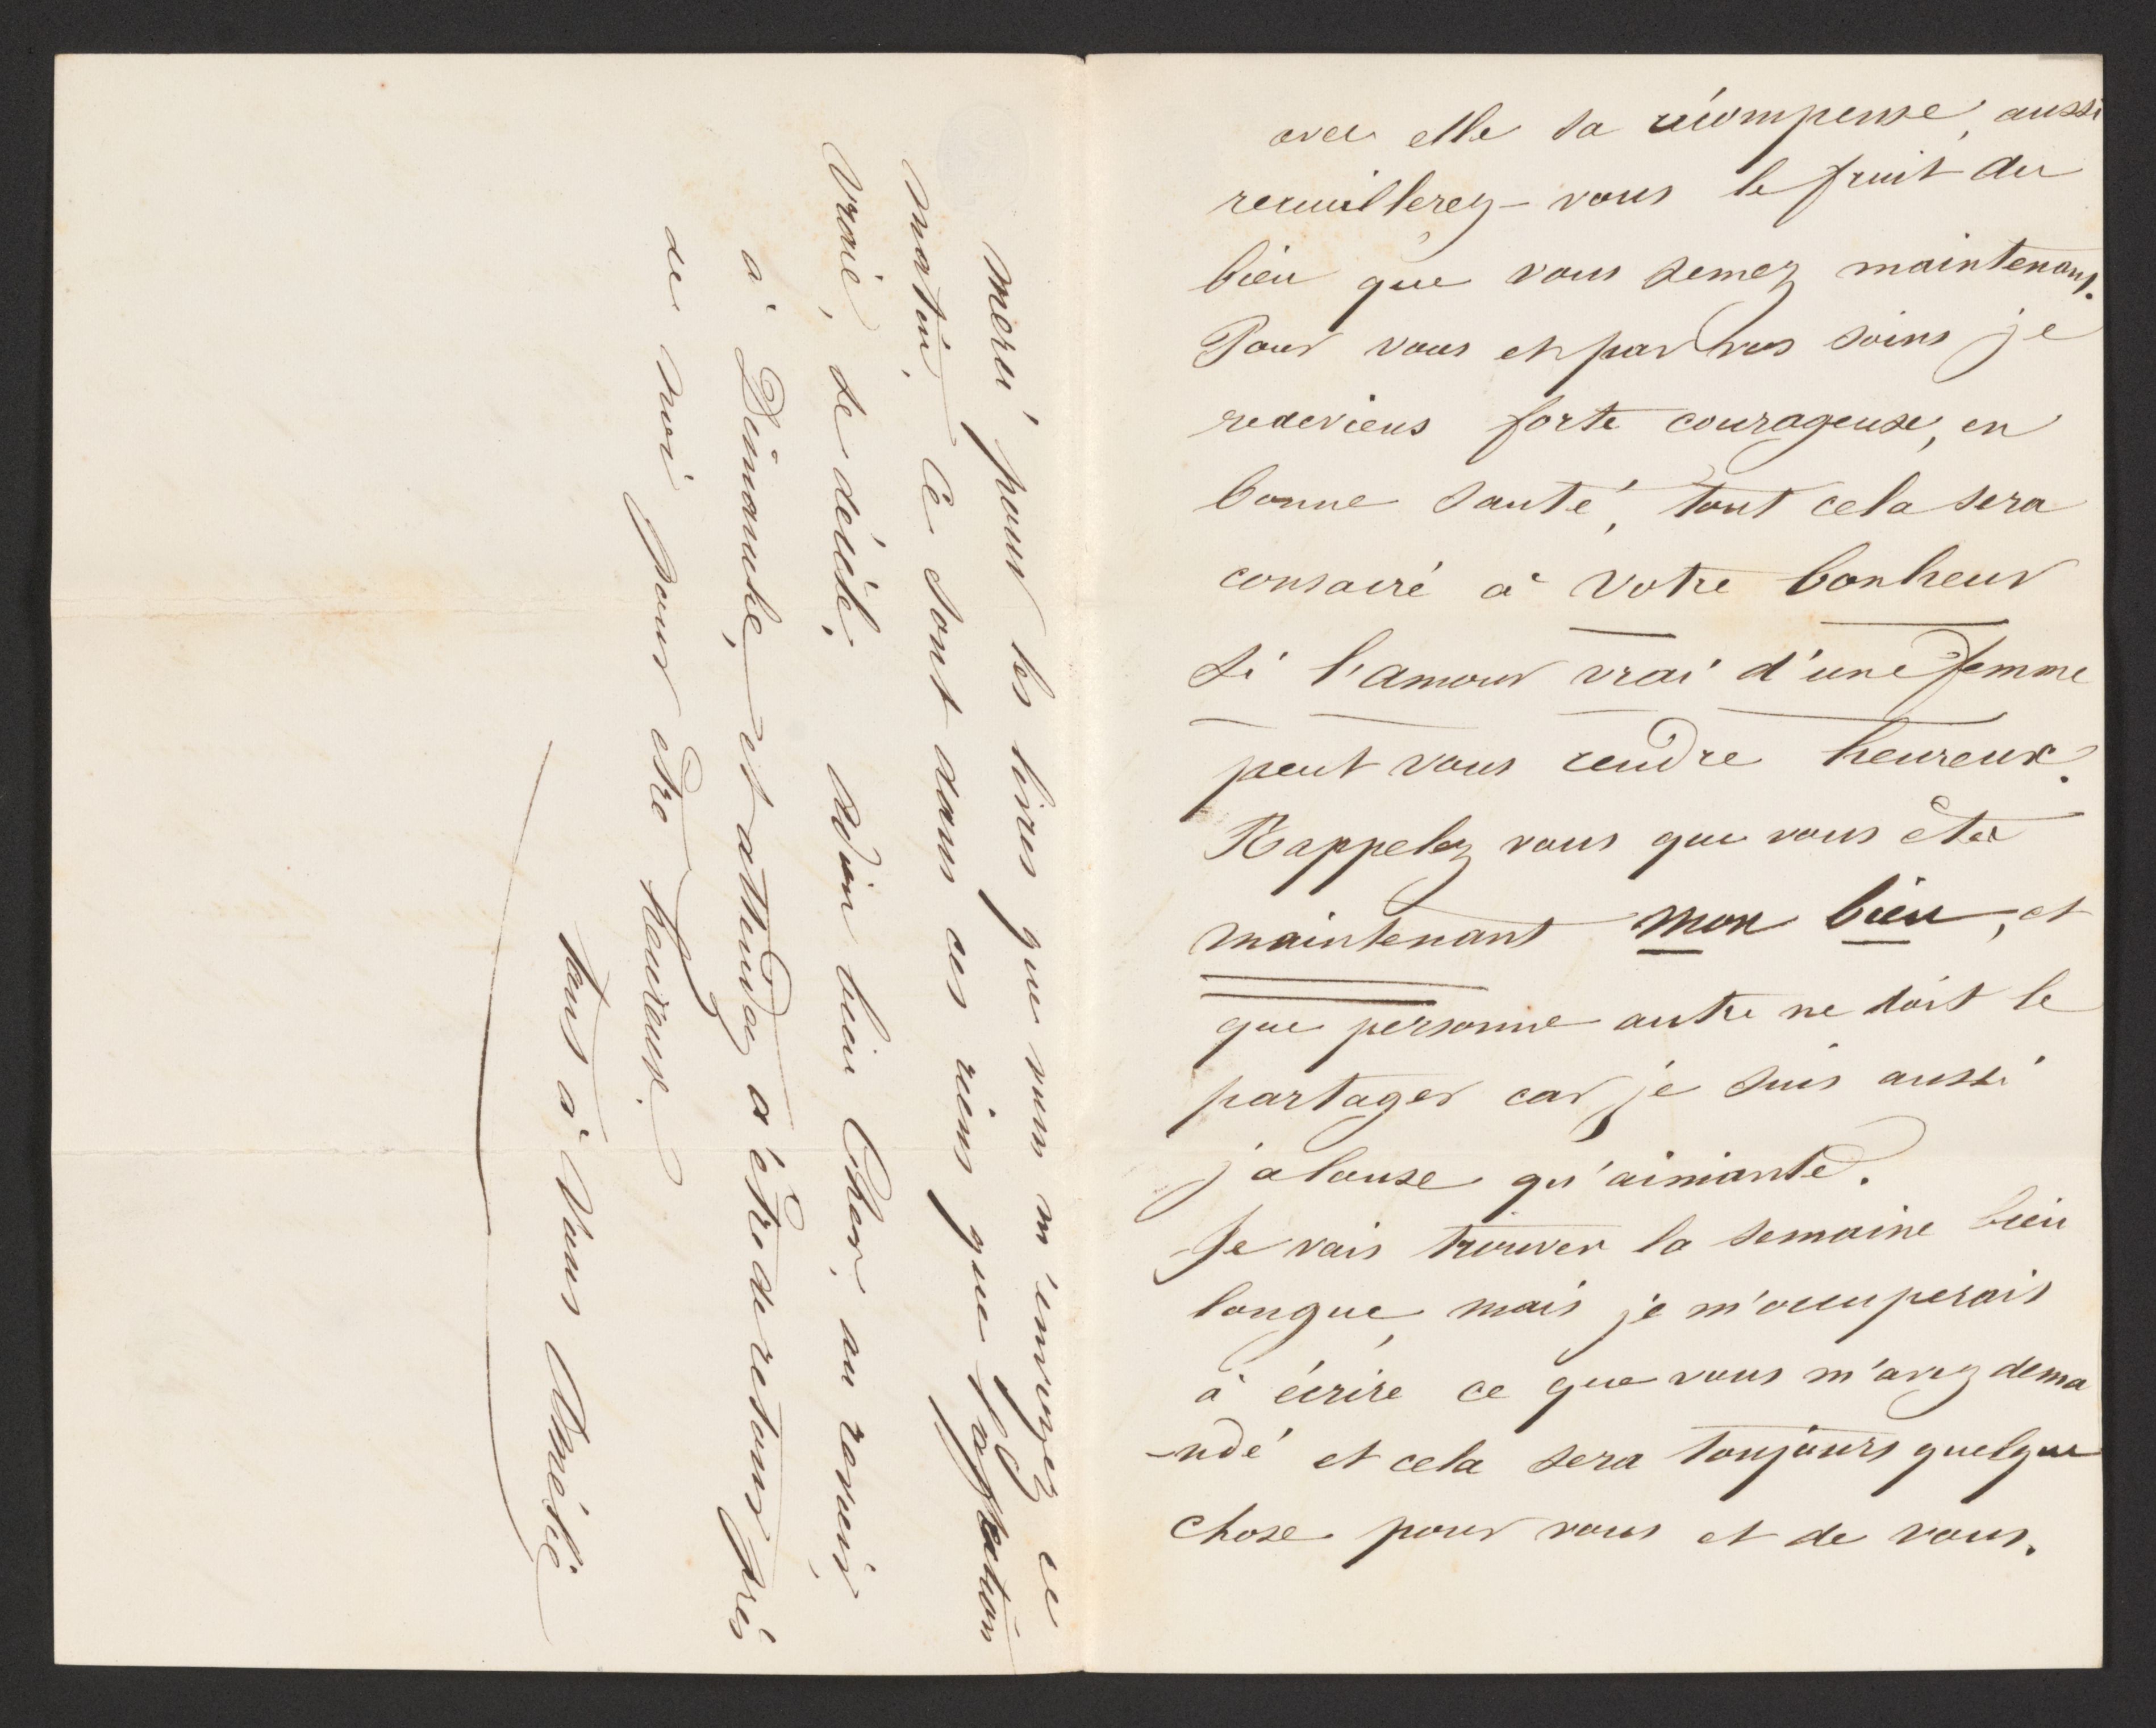 avec elle sa récompense, aussi
recueillerez-vous le fruit du
bien que vous semez maintenant.
Pour vous et par vos soins je
redeviens forte courageuse, en
bonne santé, tout cela sera
consacré à votre bonheur
si l'amour vrai d'une femme
peut vous rendre heureux.
Rappelez vous que vous êtes
maintenant mon bien, et
que personne autre ne doit le
partager car je suis aussi
jalouse qu'aimante.
Je vais trouver la semaine bien
longue, mais je m'occuperais
à écrire ce que vous m'avez dema
-ndé et cela sera toujours quelque
chose pour vous et de vous.
merci pour les livres que vous m'envoyez ce
matin, ce sont dans ces riens que l'affection
vraie, se décèle. Adieu bien Cher, au revoir
à Dimanche, et attendez d'être de retour près
de moi pour être heureux.
tout à vous Amélie